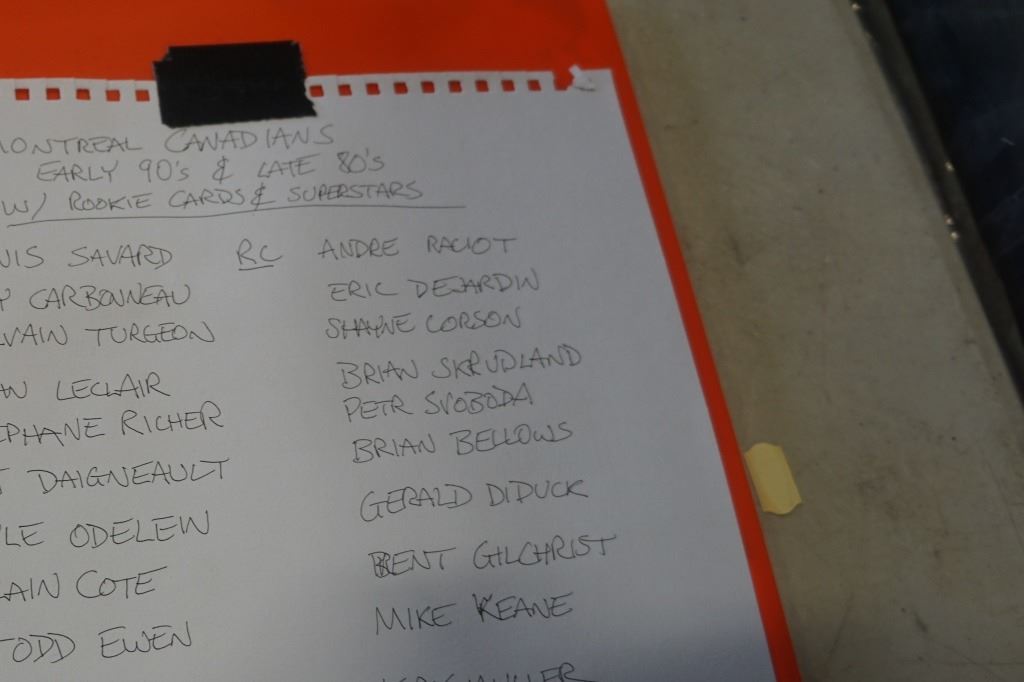 MONTREAL CANADIANS
EARLY 90's & LATE 80's
W/ ROOKIE CARDS & SUPERSTARS
NIS SAVARD RC
Y CARBONNEAU
LVAIN TURGEON
AN LECLAIR
EPHANE RICHER
T DAIGNEAULT
LE ODELEW
LAIN COTE
TODD EWEN
ANDRE RACIOT
ERIC DEJARDIN
SHAYNE CORSON
BRIAN SKRUDLAND
PETR SVOBODA
BRIAN BELLOWS
GERALD DIDUCK
BRENT GILCHRIST
MIKE KEANE